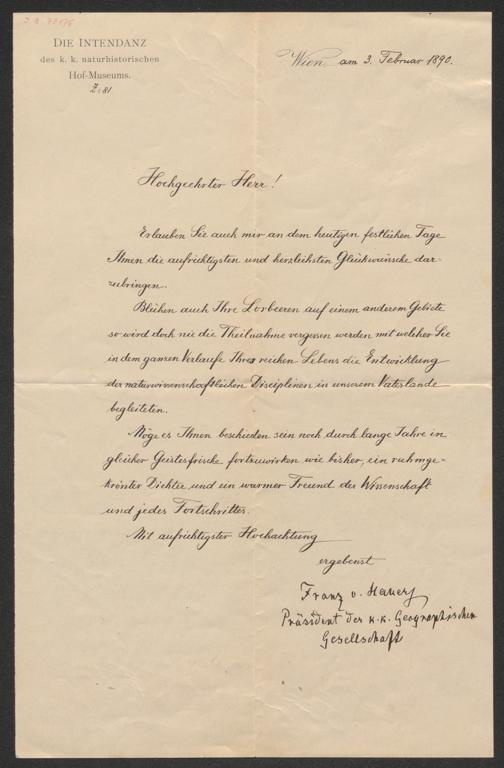 DIE INTENDANZ
des k. k. naturhistorischen
Hof-Museums.
Z: 81
Wien, am 3. Februar 1890.
Hochgeehrter Herr!
Erlauben Sie auch mir an dem heutigen festlichen Tage
Ihnen die aufrichtigsten und herzlichsten Glückwünsche dar-
zubringen.
Blühen auch Ihre Lorbeeren auf einem anderem Gebiete
so wird doch nie die Theilnahme vergessen werden mit welcher Sie
in dem ganzen Verlaufe Ihres reichen Lebens die Entwicklung
der naturwissenschaftlichen Disciplinen in unserem Vaterlande
begleiteten.
Möge es Ihnen beschieden sein noch durch lange Jahre in
gleicher Geistesfrische fortzuwirken wie bisher, ein ruhmge-
krönter Dichter und ein warmer Freund der Wissenschaft
und jedes Fortschrittes.
Mit aufrichtigster Hochachtung
ergebenst
Franz v. Hauer
Präsident der k. k. Geographischen
Gesellschaft